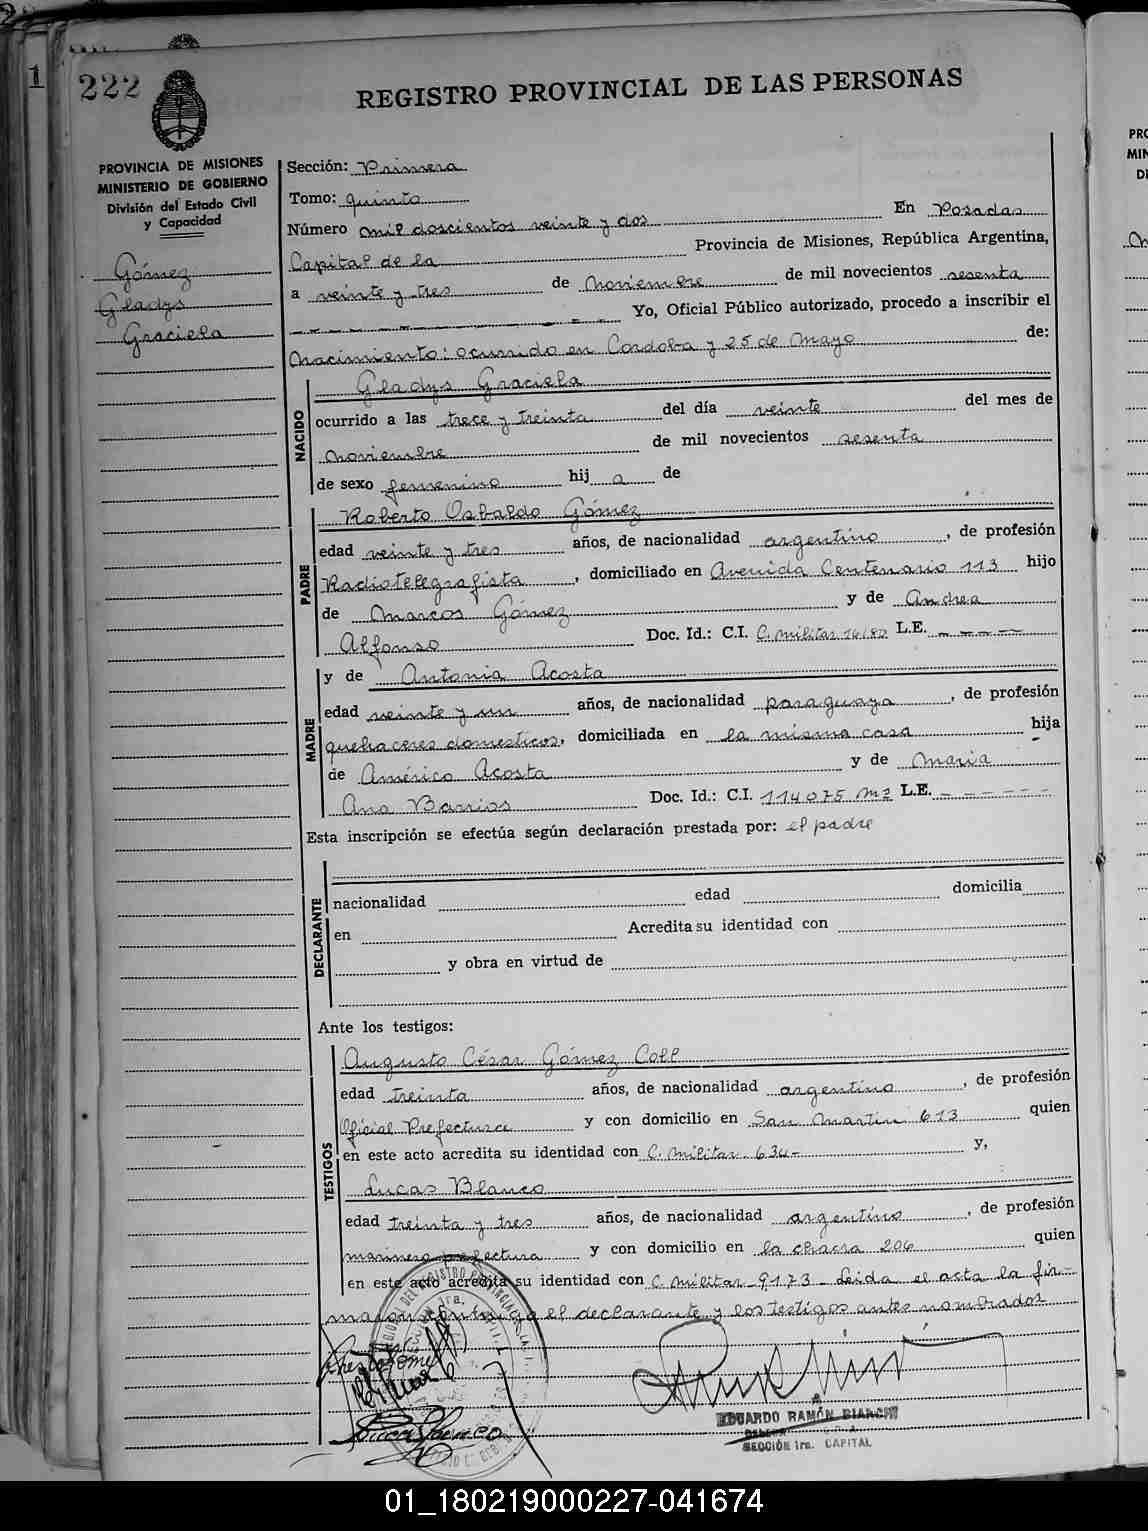 222
REGISTRO PROVINCIAL DE LAS PERSONAS
PROVINCIA DE MISIONES
MINISTERIO DE GOBIERNO
División del Estado Civil
y Capacidad
Gómez
Gladys
Graciela
Sección: Primera
Tomo: quinto
Número mil doscientos veinte y dos En Posadas
Capital de la Provincia de Misiones, República Argentina,
a veinte y tres de Noviembre de mil novecientos sesenta
Yo, Oficial Público autorizado, procedo a inscribir el
Nacimiento: ocurrido en Cordoba y 25 de Mayo de:
NACIDO
Gladys Graciela
ocurrido a las trece y treinta del día veinte del mes de
Noviembre de mil novecientos sesenta
de sexo femenino hij a de
PADRE
Roberto Osbaldo Gómez
edad veinte y tres años, de nacionalidad argentino, de profesión
Radiotelegrafista, domiciliado en Avenida Centenario 113 hijo
de Marcos Gómez y de Andrea
Alfonso Doc. Id.: C.I. C. militar L.E. - - - -
MADRE
y de Antonia Acosta
edad veinte y un años, de nacionalidad paraguaya, de profesión
quehaceres domesticos, domiciliada en la misma casa hija
de Américo Acosta y de Maria
Ana Barrios Doc. Id.: C.I. 114075 L.E. - - - - - -
Esta inscripción se efectúa según declaración prestada por: el padre
DECLARANTE
nacionalidad edad domicilia
en Acredita su identidad con
y obra en virtud de
Ante los testigos:
TESTIGOS
Augusto César Gómez Coll
edad treinta años, de nacionalidad argentino, de profesión
Oficial Prefectura y con domicilio en San Martin 613 quien
en este acto acredita su identidad con C. militar. 634- y,
Lucas Blanco
edad treinta y tres años, de nacionalidad argentino, de profesión
marinero prefectura y con domicilio en la chacra 206 quien
en este acto acredita su identidad con C. militar-9173- Leida el acta la fir-
man conmigo el declarante y los testigos antes nombrados
EDUARDO RAMÓN BIANCHI
SECCIÓN 1ra. CAPITAL
01_180219000227-041674